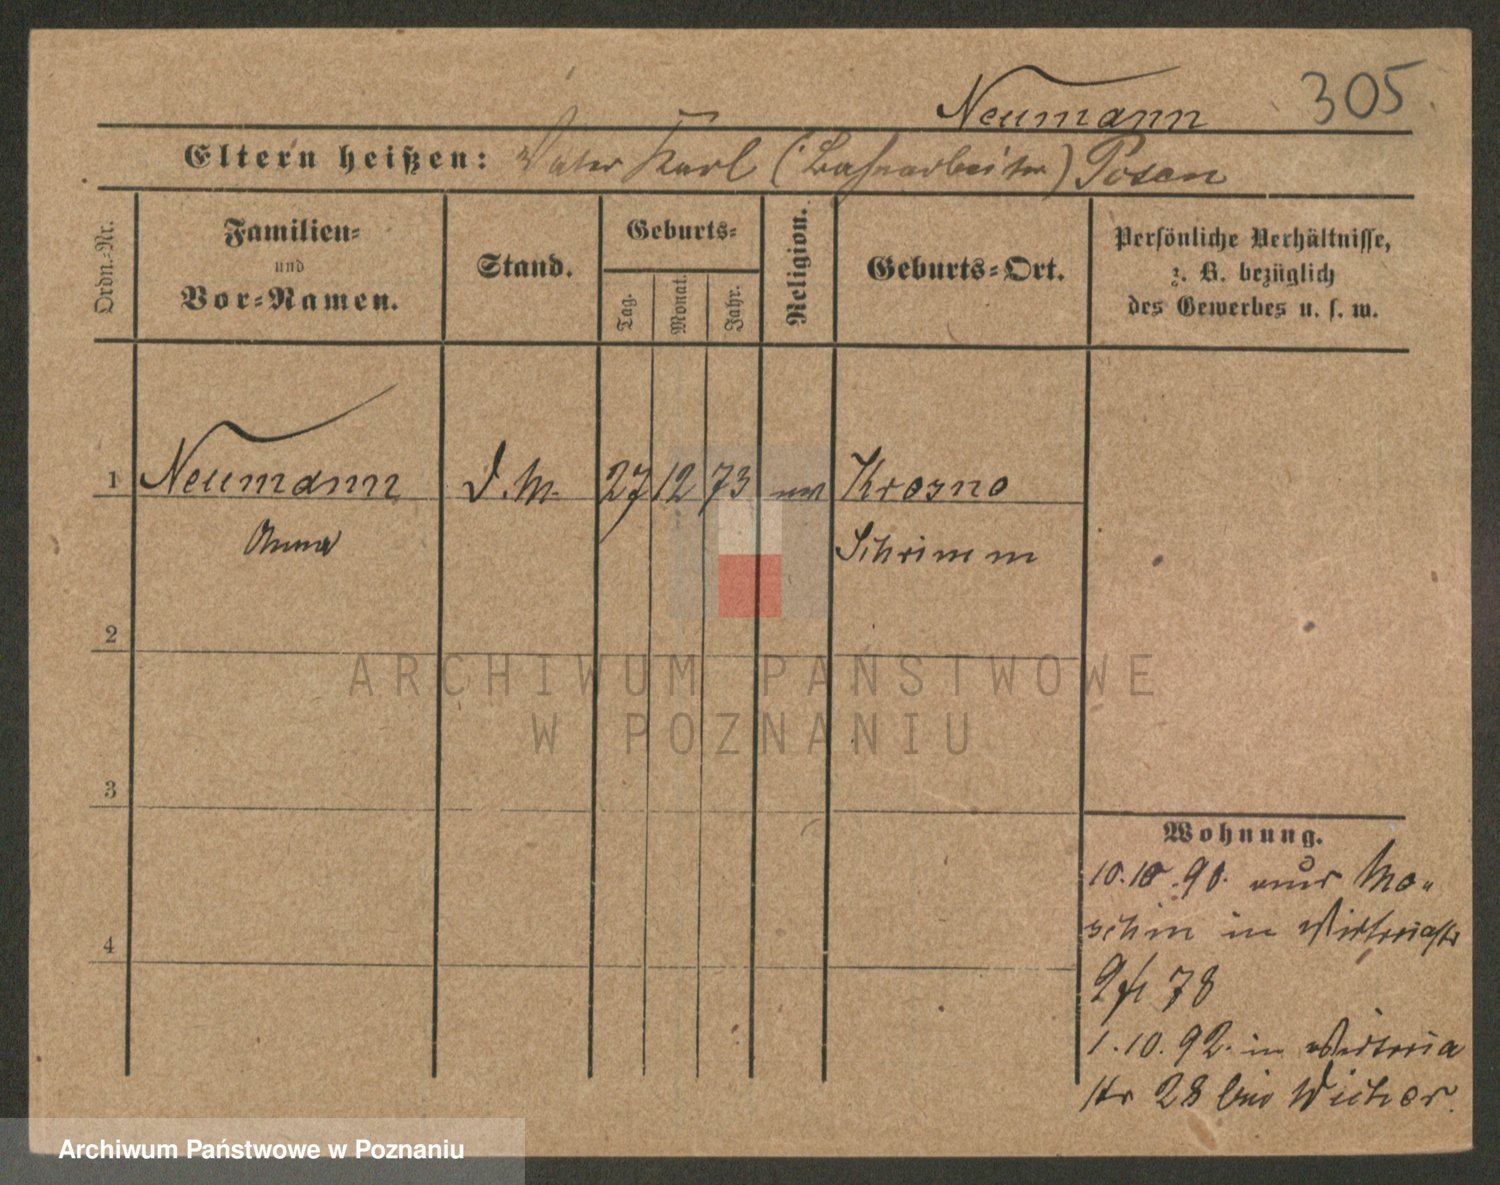 Neumann 305
Eltern heißen: Vater Karl (Bahnarbeiter) Posen
Ordn.-Nr.
Familien-
und
Vor-Namen.
Stand.
Geburts-
Tag.
Monat.
Jahr.
Religion.
Geburts-Ort.
Persönliche Verhältnisse,
z. B. bezüglich
des Gewerbes u. s. w.
1 Neumann D. M. 27 12 73 Krosno
Anna Schrimm
2
3
4
Wohnung.
10.10.90. aus Mo-
schin in Victoriastr
78
1.10.92. in Victoria
str 28 bei Wicher.
ARCHIWUM PAŃSTWOWE
W POZNANIU
Archiwum Państwowe w Poznaniu